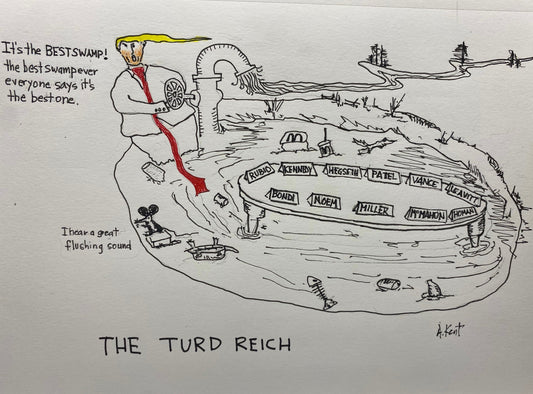 It's the BEST SWAMP!
the best swamp ever
everyone says it's
the best one.
RUBIO
KENNEDY
HEGSETH
PATEL
VANCE
LEAVITT
BONDI
NOEM
MILLER
McMAHON
HOMAN
I hear a great
flushing sound
A. Kent
THE TURD REICH